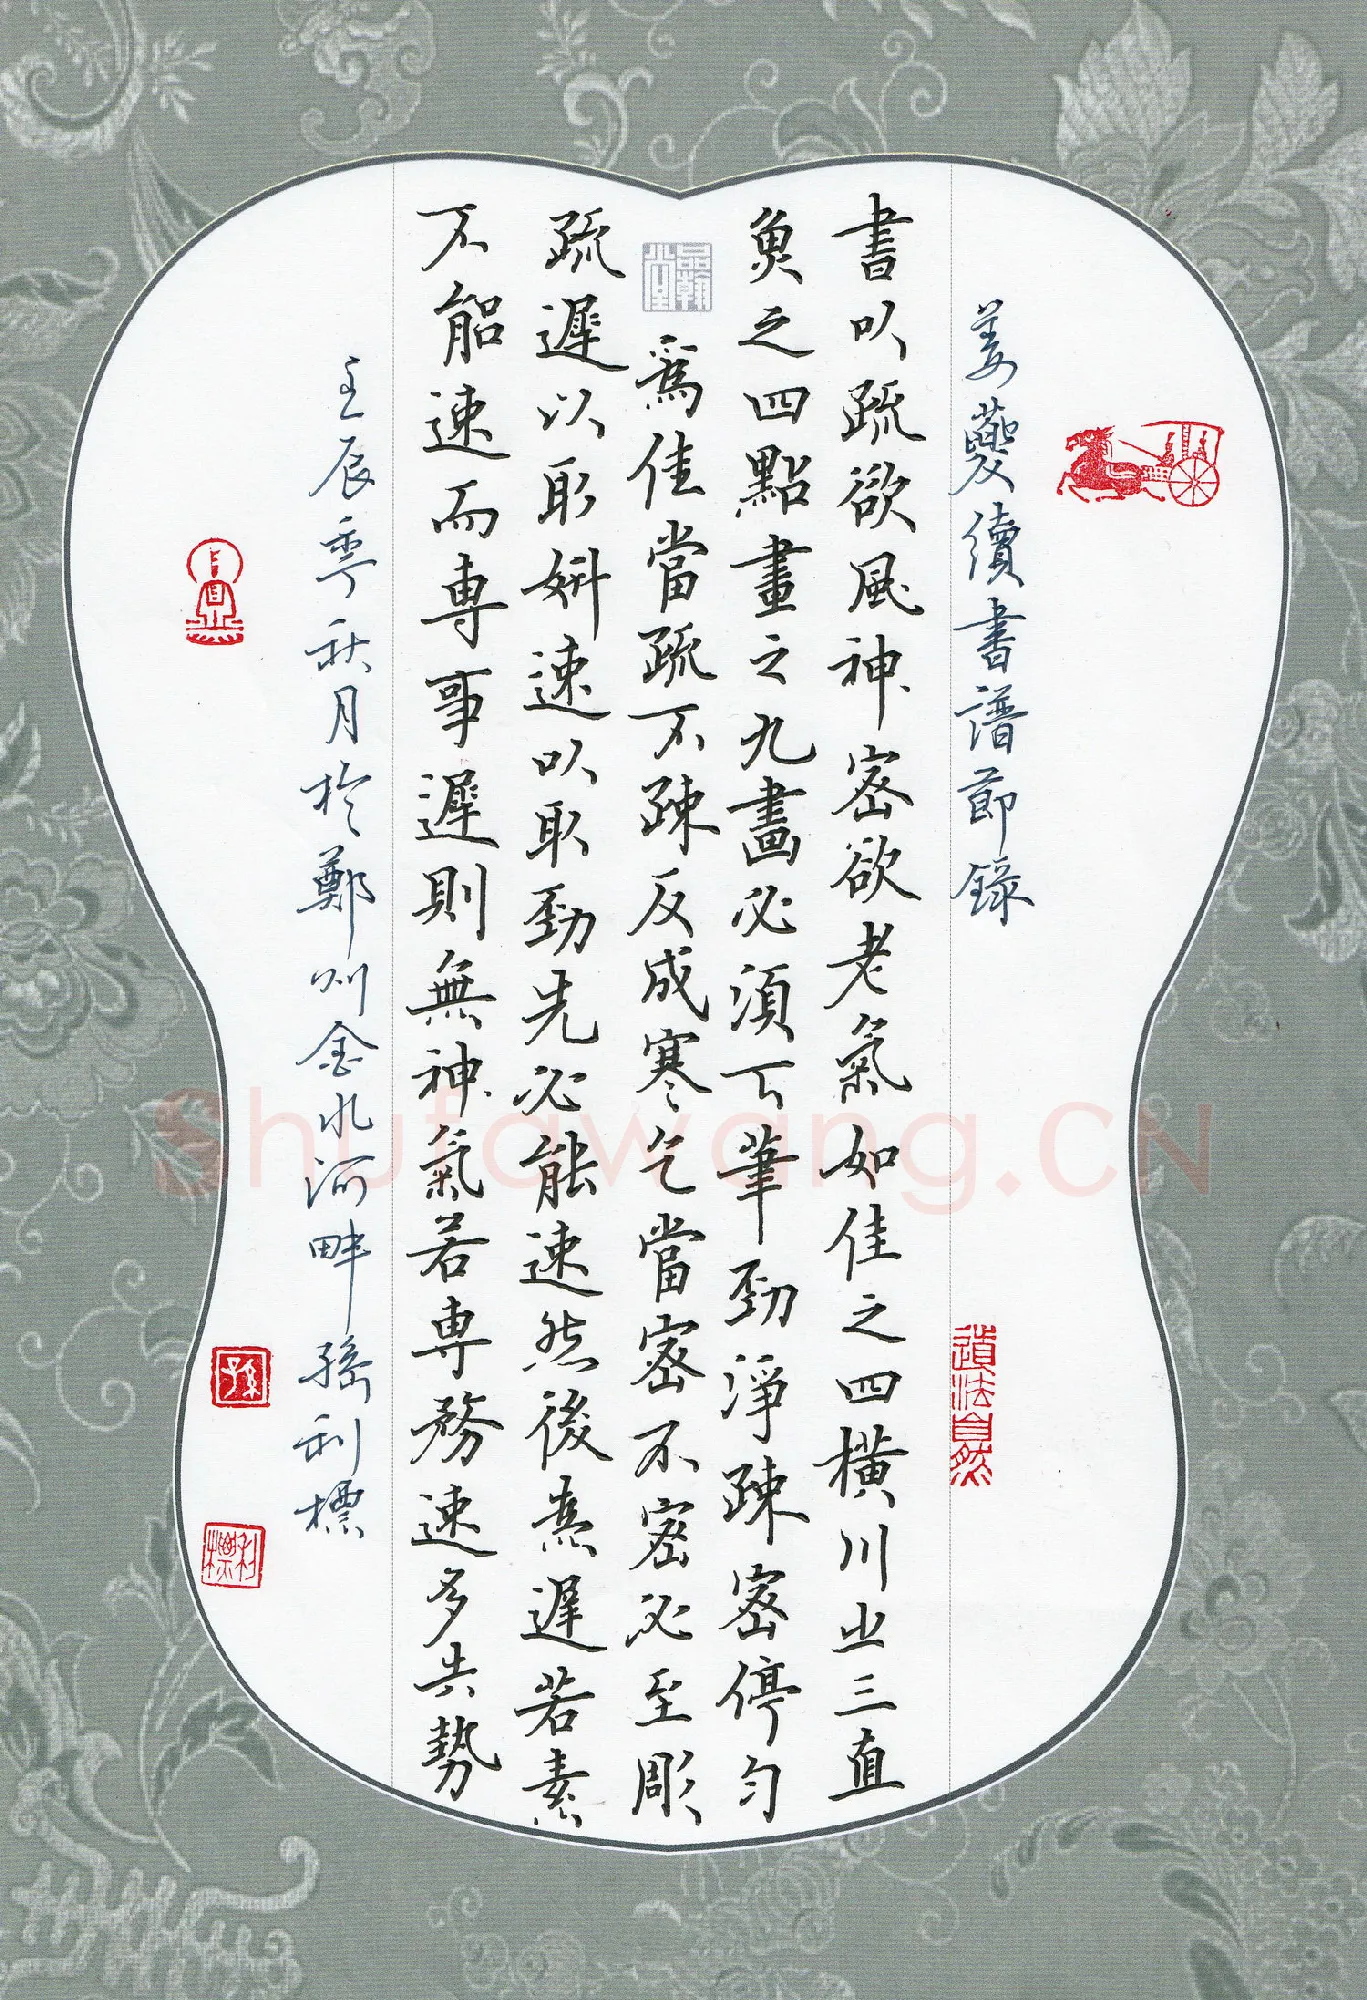 姜夔續書譜節錄
書以疏欲風神密欲老氣如佳之四橫川之三直
魚之四點畫之九畫必須下筆勁淨疎密停勻
為佳當疏不疎反成寒乞當密不密必至彫
疏遲以取妍速以取勁先必能速然後為遲若素
不能速而專事遲則無神氣若專務速多失勢
壬辰季秋月於鄭州金水河畔孫利標
道法自然
孫
利標
Shufawang.CN